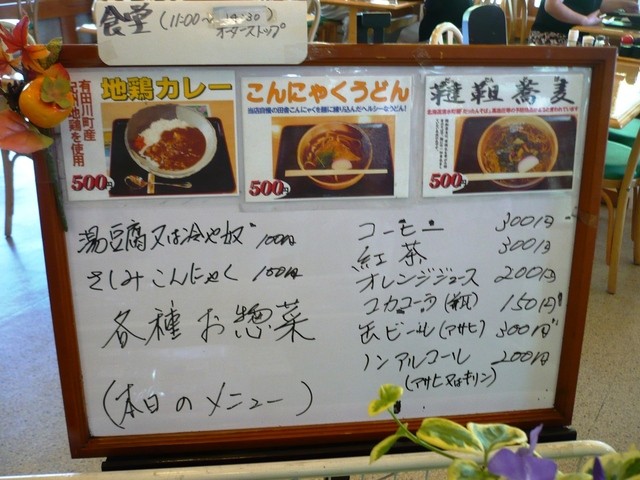 食堂 (11:00〜14:30)
オーダーストップ
有田川町産
紀州地鶏を使用
地鶏カレー
500円
こんにゃくうどん
当店自慢の田舎こんにゃくを麺に練り込んだヘルシーなうどん!
500円
韃靼蕎麦
500円
湯豆腐又は冷や奴 100円
さしみこんにゃく 100円
各種お惣菜
(本日のメニュー)
コーヒー 300円
紅茶 300円
オレンジジュース 200円
コカコーラ(瓶) 150円
缶ビール(アサヒ) 300円
ノンアルコール 200円
(アサヒ又はキリン)